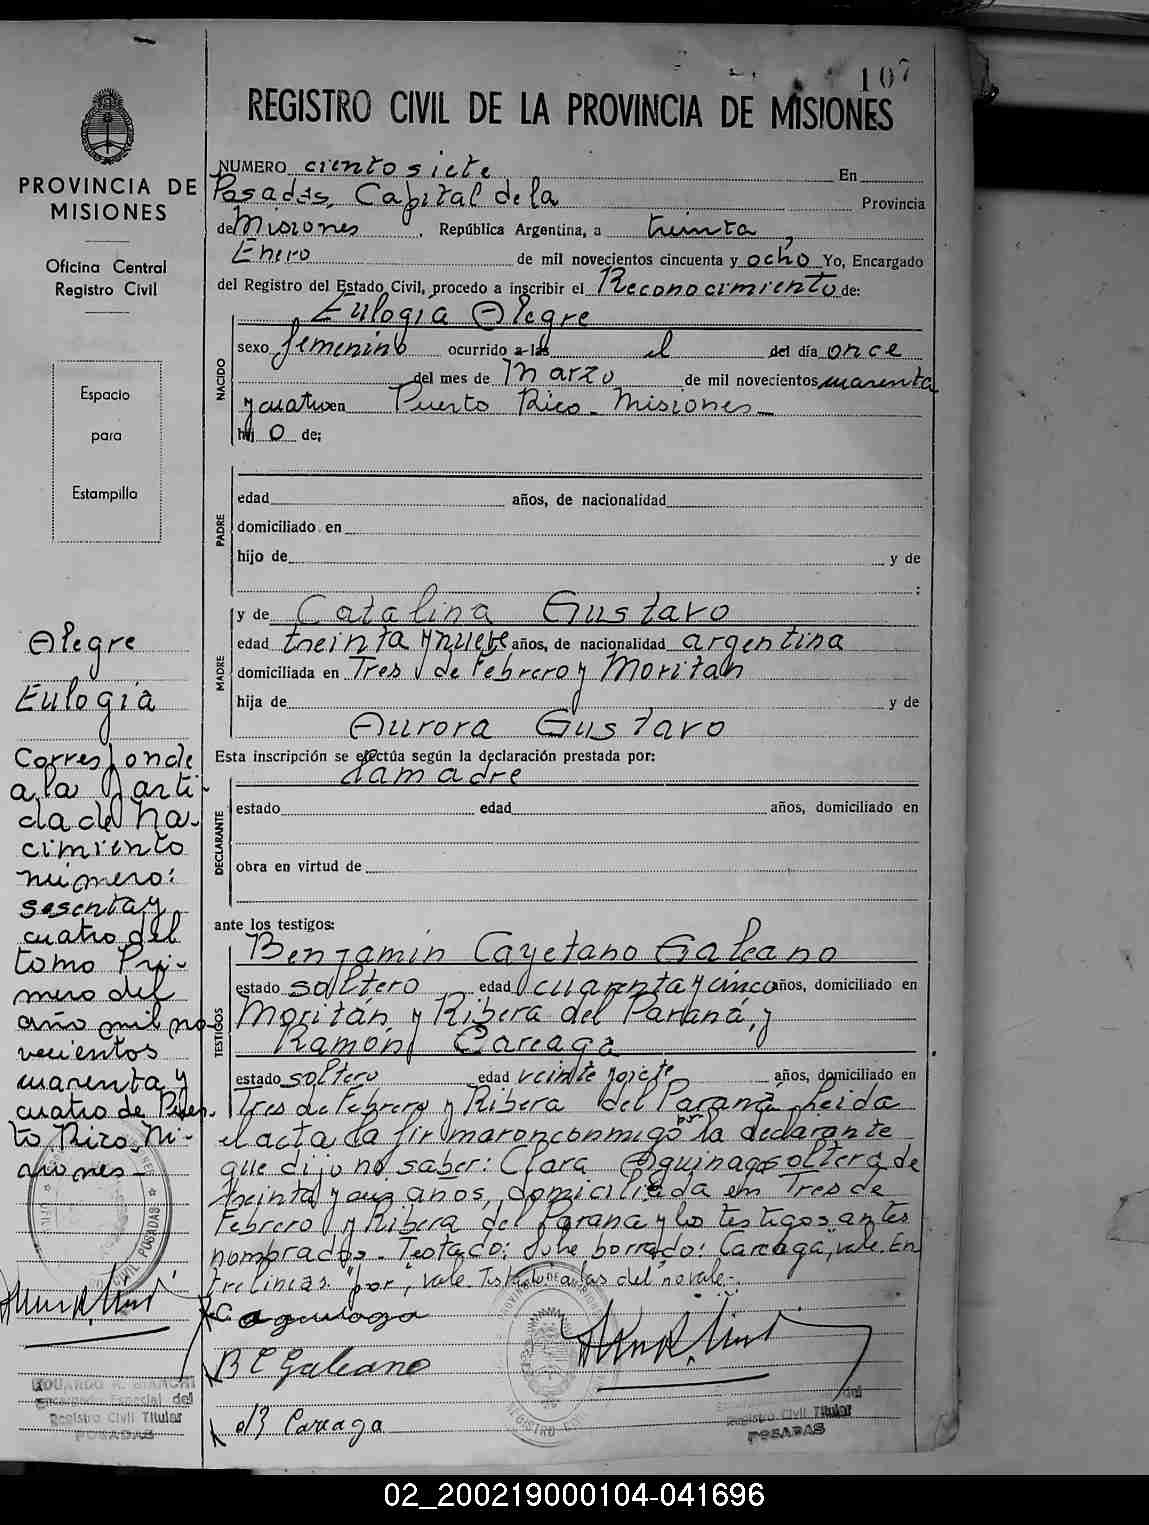 107
REGISTRO CIVIL DE LA PROVINCIA DE MISIONES
NUMERO ciento siete En
Posadas, Capital de la Provincia
de Misiones, República Argentina, a treinta,
Enero de mil novecientos cincuenta y ocho Yo, Encargado
del Registro del Estado Civil, procedo a inscribir el Reconocimiento de:
Eulogia Alegre
NACIDO
sexo femenino ocurrido a las el del día once
del mes de Marzo de mil novecientos cuarenta
y cuatro en Puerto Rico - Misiones -
hij o de;
PADRE
edad años, de nacionalidad
domiciliado en
hijo de y de
;
MADRE
y de Catalina Gustavo
edad treinta y nueve años, de nacionalidad argentina
domiciliada en Tres de Febrero y Moritán
hija de y de
Aurora Gustavo
Esta inscripción se efectúa según la declaración prestada por:
La madre
DECLARANTE
estado edad años, domiciliado en
obra en virtud de
ante los testigos:
TESTIGOS
Benjamín Cayetano Galeano
estado soltero edad cuarenta y cinco años, domiciliado en
Moritán y Ribera del Paraná, y
Ramón Careaga
estado soltero edad veinte y siete años, domiciliado en
Tres de Febrero y Ribera del Paraná. Leida
el acta la firmaron conmigo por la declarante
que dijo no saber: Clara Aguinaga soltera de
treinta y años, domiciliada en Tres de
Febrero y Ribera del Paraná y los testigos antes
nombrados - Testado: Sobre borrado: Careaga", vale. En
tre lineas "por", vale Testado "a las del" no vale -
C aguinaga
B C Galeano
R Careaga
Registro Civil Titular
POSADAS
PROVINCIA DE
MISIONES
Oficina Central
Registro Civil
Espacio
para
Estampilla
Alegre
Eulogia
Corresponde
a la parti-
da de Na-
cimiento
número:
sesenta y
cuatro del
tomo Pri-
mero del
año mil no-
vecientos
cuarenta y
cuatro de Puer-
to Rico, Mi-
siones -
EDUARDO R. BIANCHI
Encargado Especial del
Registro Civil Titular
POSADAS
02_200219000104-041696